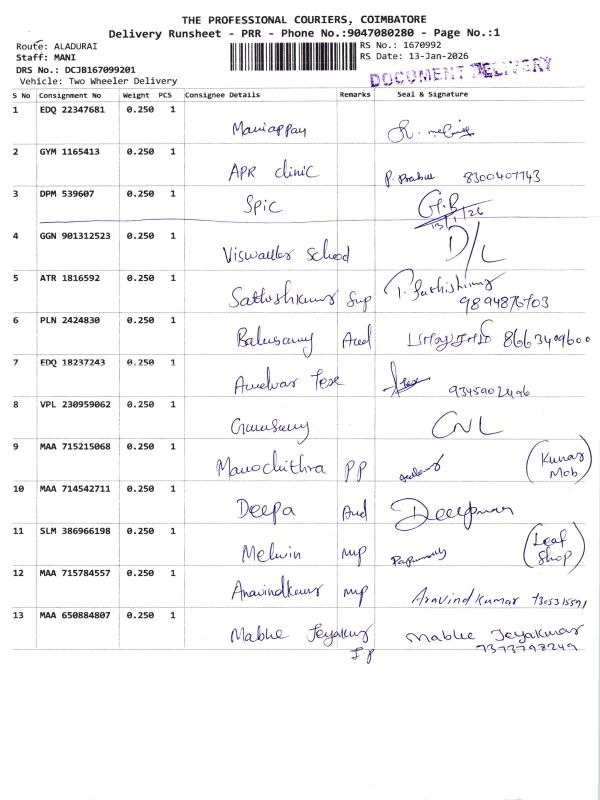 THE PROFESSIONAL COURIERS, COIMBATORE
Delivery Runsheet - PRR - Phone No.:9047080280 - Page No.:1
Route: ALADURAI RS No.: 1670992
Staff: MANI RS Date: 13-Jan-2026
DRS No.: DCJB167099201
DOCUMENT DELIVERY
Vehicle: Two Wheeler Delivery
S No Consignment No Weight PCS Consignee Details Remarks Seal & Signature
1 EDQ 22347681 0.250 1
2 GYM 1165413 0.250 1 APR clinic P. Prabu 8300407743
3 DPM 539607 0.250 1 Spic G.B 13/1/26
4 GGN 901312523 0.250 1 School D/L
5 ATR 1816592 0.250 1 Sathishkumar Sup 9894876703
6 PLN 2424830 0.250 1 Balusamy 8663409600
7 EDQ 18237243 0.250 1 9345902496
8 VPL 230959062 0.250 1 CNL
9 MAA 715215068 0.250 1 Manochithra PP (Kumar Mob)
10 MAA 714542711 0.250 1 Deepa
11 SLM 386966198 0.250 1 Melwin (Leaf Shop)
12 MAA 715784557 0.250 1 Aravindkumar Aravind Kumar 7305315591
13 MAA 650884807 0.250 1 Mable Jeyakumar Mable Jeyakumar
7373798249